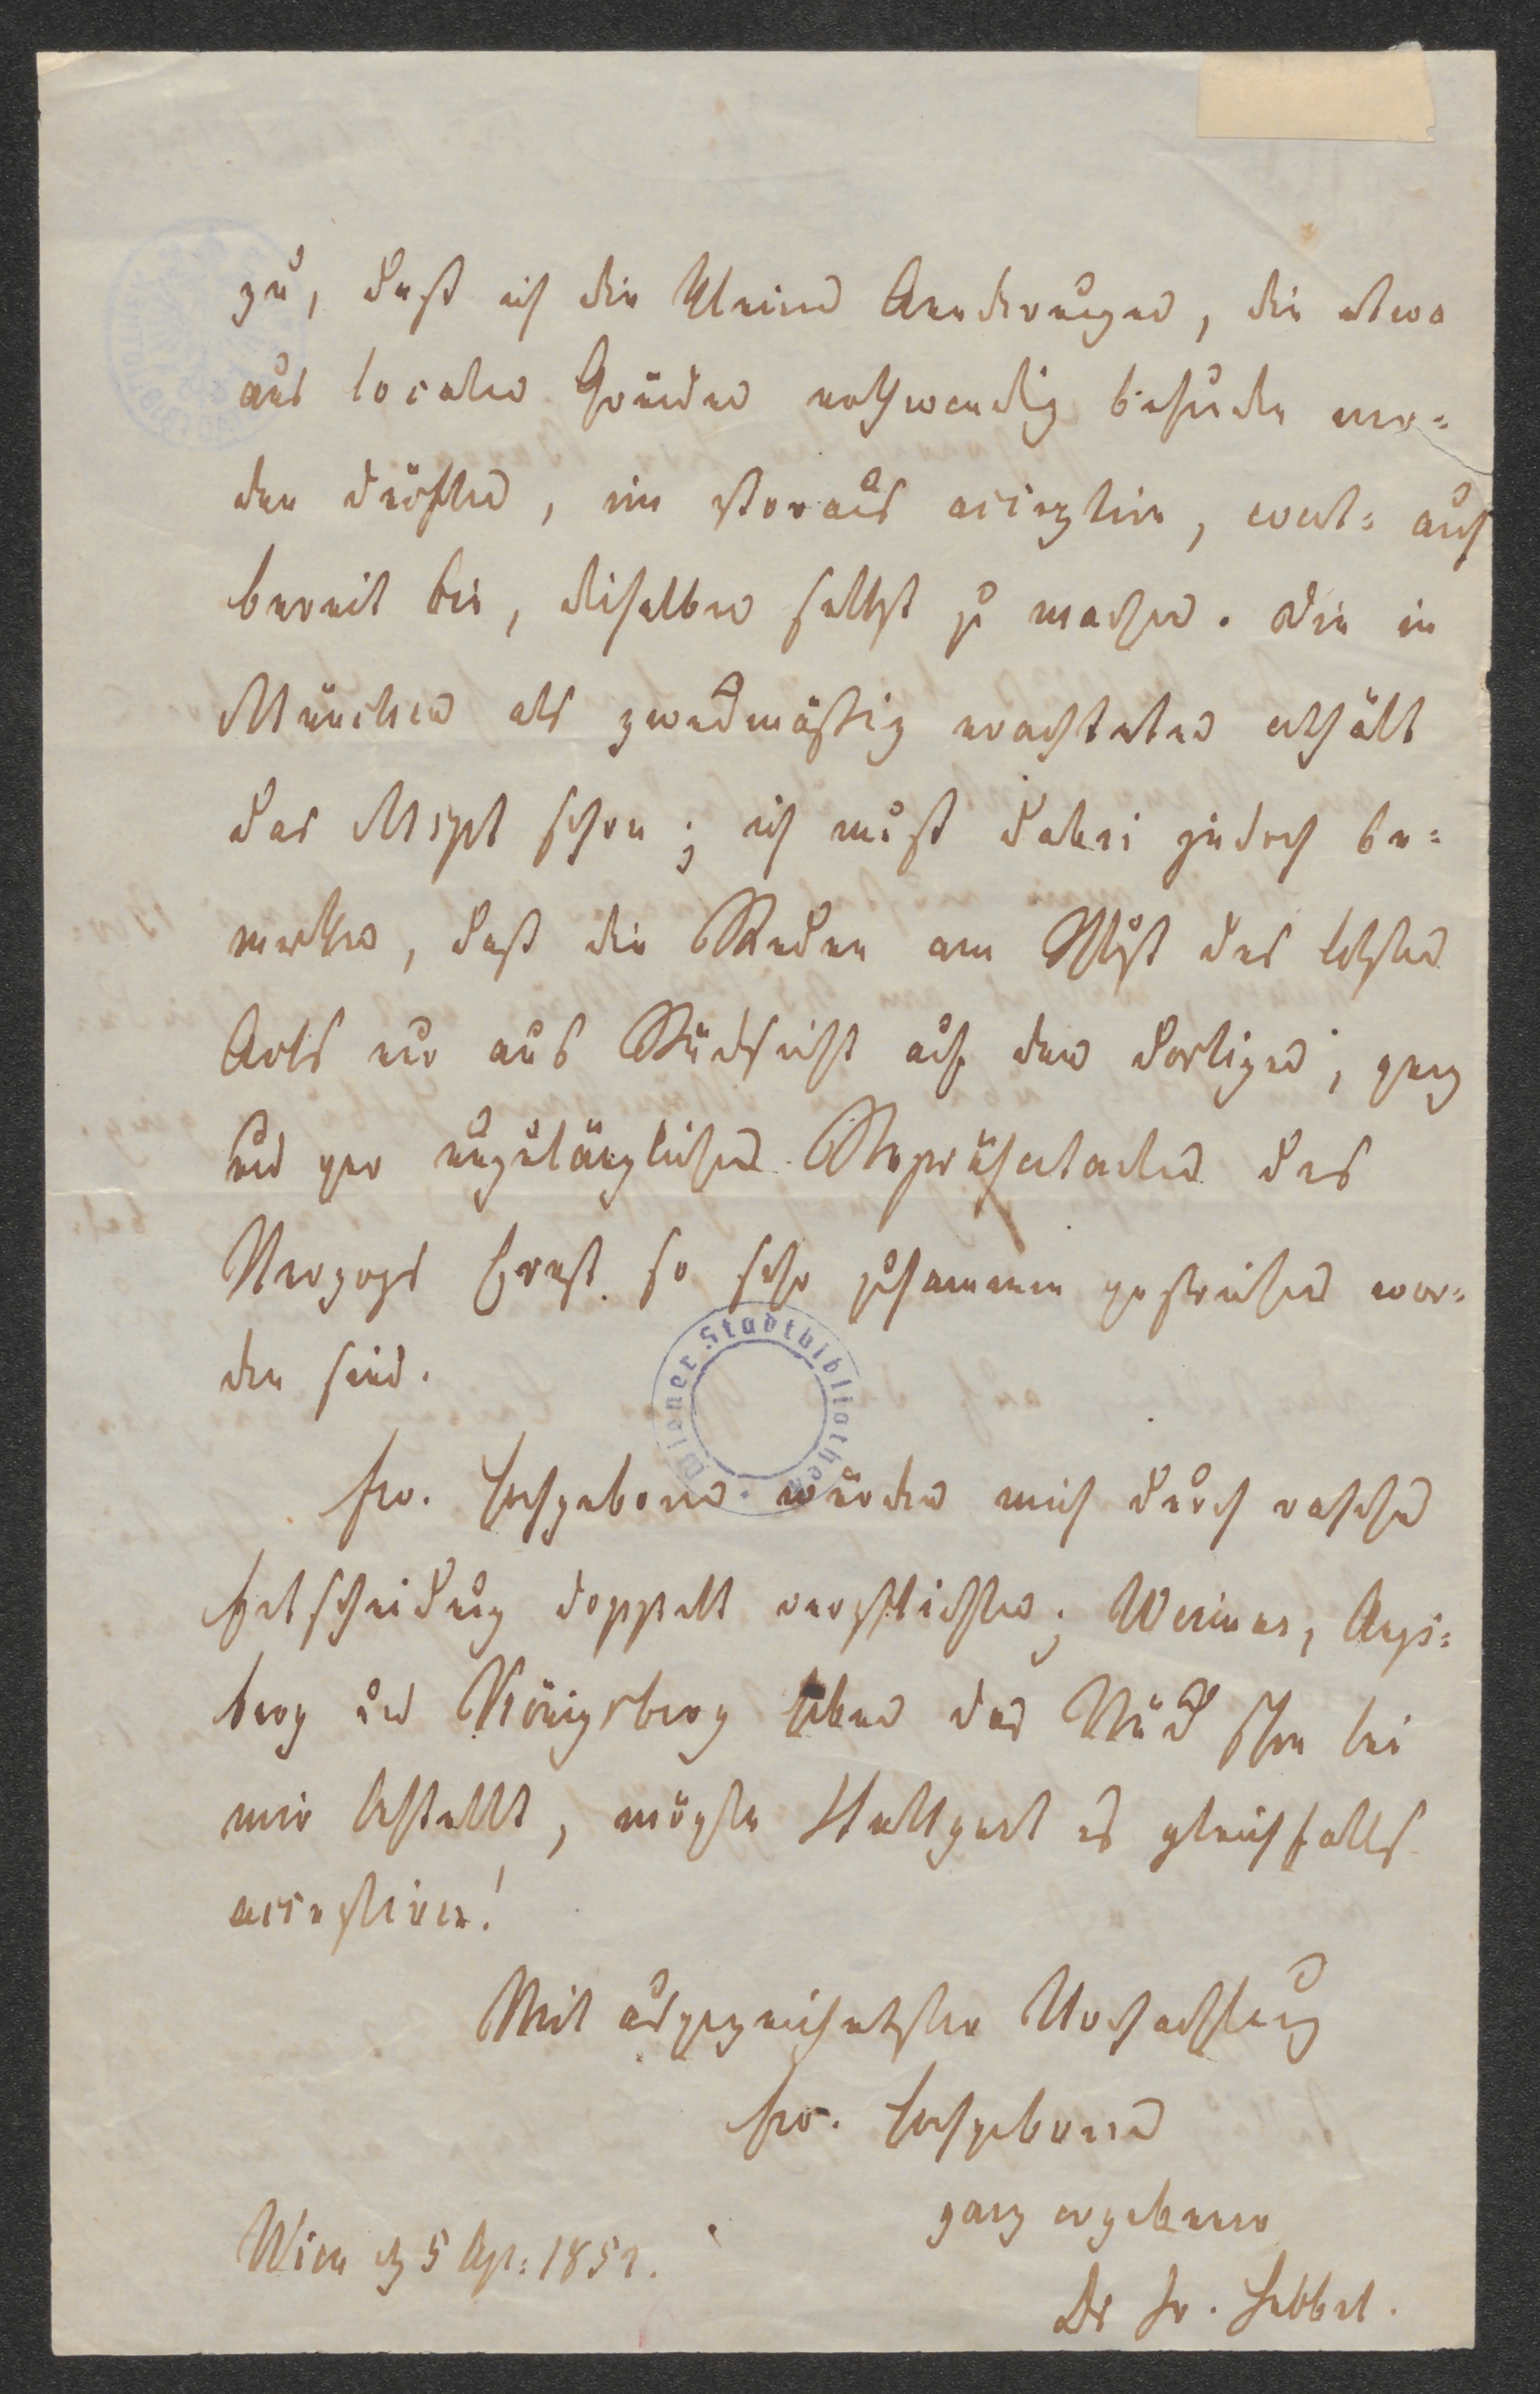 zu, daß ich die kleinen Aenderungen, die etwa
aus localen Gründen nothwendig befunden wer=
den dürften, im Voraus acceptire, event: auch
bereit bin, dieselben selbst zu machen. Die in
München als zweckmäßig erachteten enthält
das Mspt schon; ich muß dabei jedoch be=
merken, daß die Reden am Schluß des letzten
Acts nur aus Rücksicht auf den dortigen, ganz
und gar unzulänglichen Repräsentanten des
Herzogs Ernst so sehr zusammen gestrichen wor=
den sind.
Ew. Hochgeboren würden mich durch rasche
Entscheidung doppelt verpflichten; Weimar,
berg und Königsberg haben das Stück schon bei
mir bestellt, möge Stuttgart es gleichfalls
acceptiren!
Mit ausgezeichnetster Hochachtung
Ew. Hochgeboren
ganz ergebener
Wien d. 5 Ap: 1852.
Dr Fr. Hebbel.
Wiener Stadtbibliothek